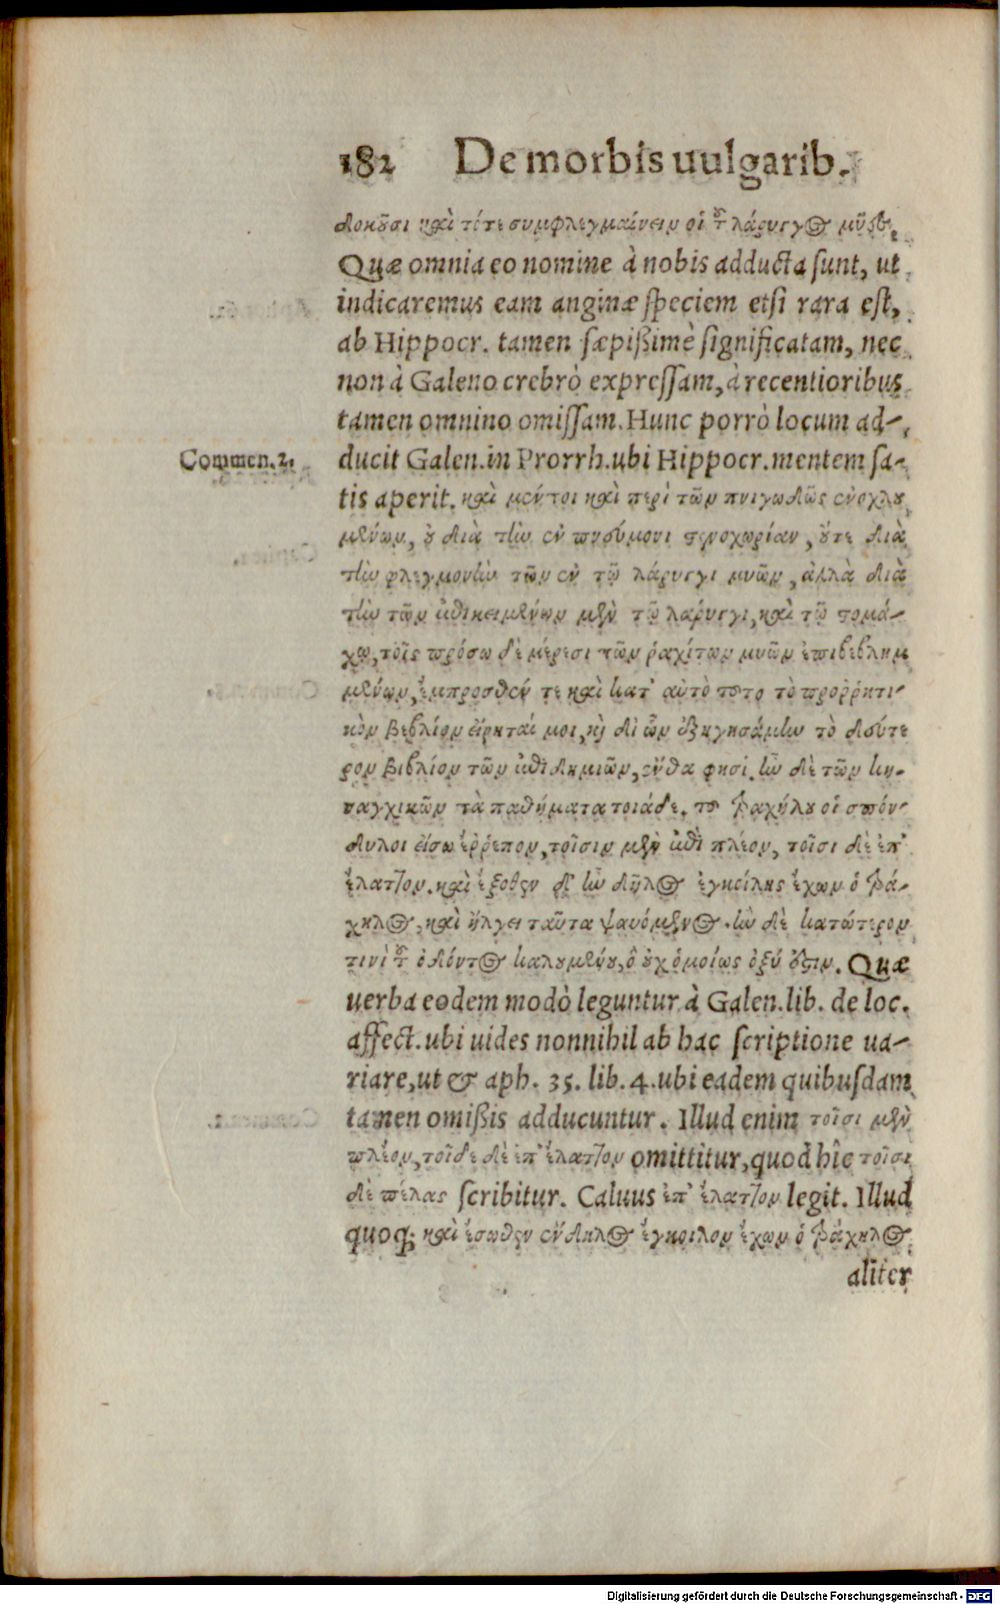 182 De morbis uulgarib.
δοκοῦσι καὶ τότε συμφλεγμαίνειν οἱ τοῦ λάρυγγος μῦες.
Quæ omnia eo nomine à nobis adducta sunt, ut
indicaremus eam anginæ speciem etsi rara est,
ab Hippocr. tamen sæpißimè significatam, nec
non à Galeno crebrò expressam, à recentioribus
tamen omnino omissam. Hunc porrò locum ad-
Commen. 2.
ducit Galen. in Prorrh. ubi Hippocr. mentem sa-
tis aperit. καὶ μέντοι καὶ περὶ τῶν πνιγωδῶς ἐνοχλου
μένων, οὐ διὰ τὴν ἐν πνεύμονι στενοχωρίαν, οὔτε διὰ
τὴν φλεγμονὴν τῶν ἐν τῷ λάρυγγι μυῶν, ἀλλὰ διὰ
τὴν τῶν ἐπικειμένων μὲν τῷ λαρύγγι, καὶ τῷ στομά-
χῳ, τοῖς πρόσω δὲ μέρεσι τῶν ῥαχίτων μυῶν ἐπιβεβλημ
μένων, ἔμπροσθέν τε καὶ κατ' αὐτὸ τοῦτο τὸ προῤῥητι-
κὸν βιβλίον εἴρηταί μοι, καὶ δι' ὧν ἐξηγησάμην τὸ δεύτε
ρον βιβλίον τῶν ἐπιδημιῶν, ἔνθα φησί. ἦν δὲ τῶν κυ-
ναγχικῶν τὰ παθήματα τοιάδε. τοῦ τραχήλου οἱ σπόν-
δυλοι εἴσω ἔῤῥεπον, τοῖσιν μὲν ἐπὶ πλέον, τοῖσι δὲ ἐπ'
ἔλαττον. καὶ ἔξοθεν δ' ἦν δῆλος ἐγκοίλης ἔχων ὁ τρά-
χηλος, καὶ ἤλγει ταῦτα ψαυόμενος. ἦν δὲ κατώτερον
τινὶ τοῦ ὀδόντος καλουμένου, ὃ οὐχ ὁμοίως ὀξύ ἐστιν. Quæ
uerba eodem modò leguntur à Galen. lib. de loc.
affect. ubi uides nonnihil ab hac scriptione ua-
riare, ut & aph. 35. lib. 4. ubi eadem quibusdam
tamen omißis adducuntur. Illud enim τοῖσι μὲν
πλέον, τοῖσδε δὲ ἐπ' ἔλαττον omittitur, quod hîc τοῖσι
δὲ πέλας scribitur. Caluus ἐπ' ἔλαττον legit. Illud
quoq; καὶ ἔσωθεν ἔνδηλος ἔγκοιλον ἔχων ὁ τράχηλος
aliter
Digitalisierung gefördert durch die Deutsche Forschungsgemeinschaft - DFG